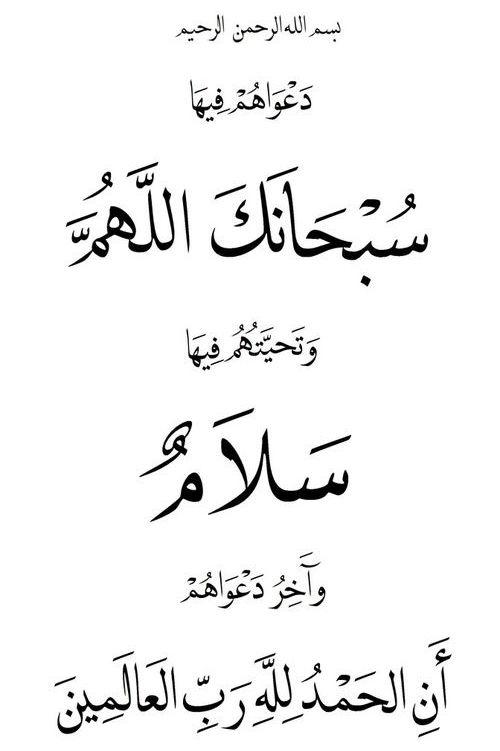 بسم الله الرحمن الرحيم
دَعْوَاهُمْ فِيهَا
سُبْحَانَكَ اللَّهُمَّ
وَتَحيَّتُهُمُ فِيهَا
سَلاَمٌ
وَآخِرُ دَعْوَاهُمْ
أَنِ الحَمْدُ لِلَّهِ رَبِّ العَالَمِينَ